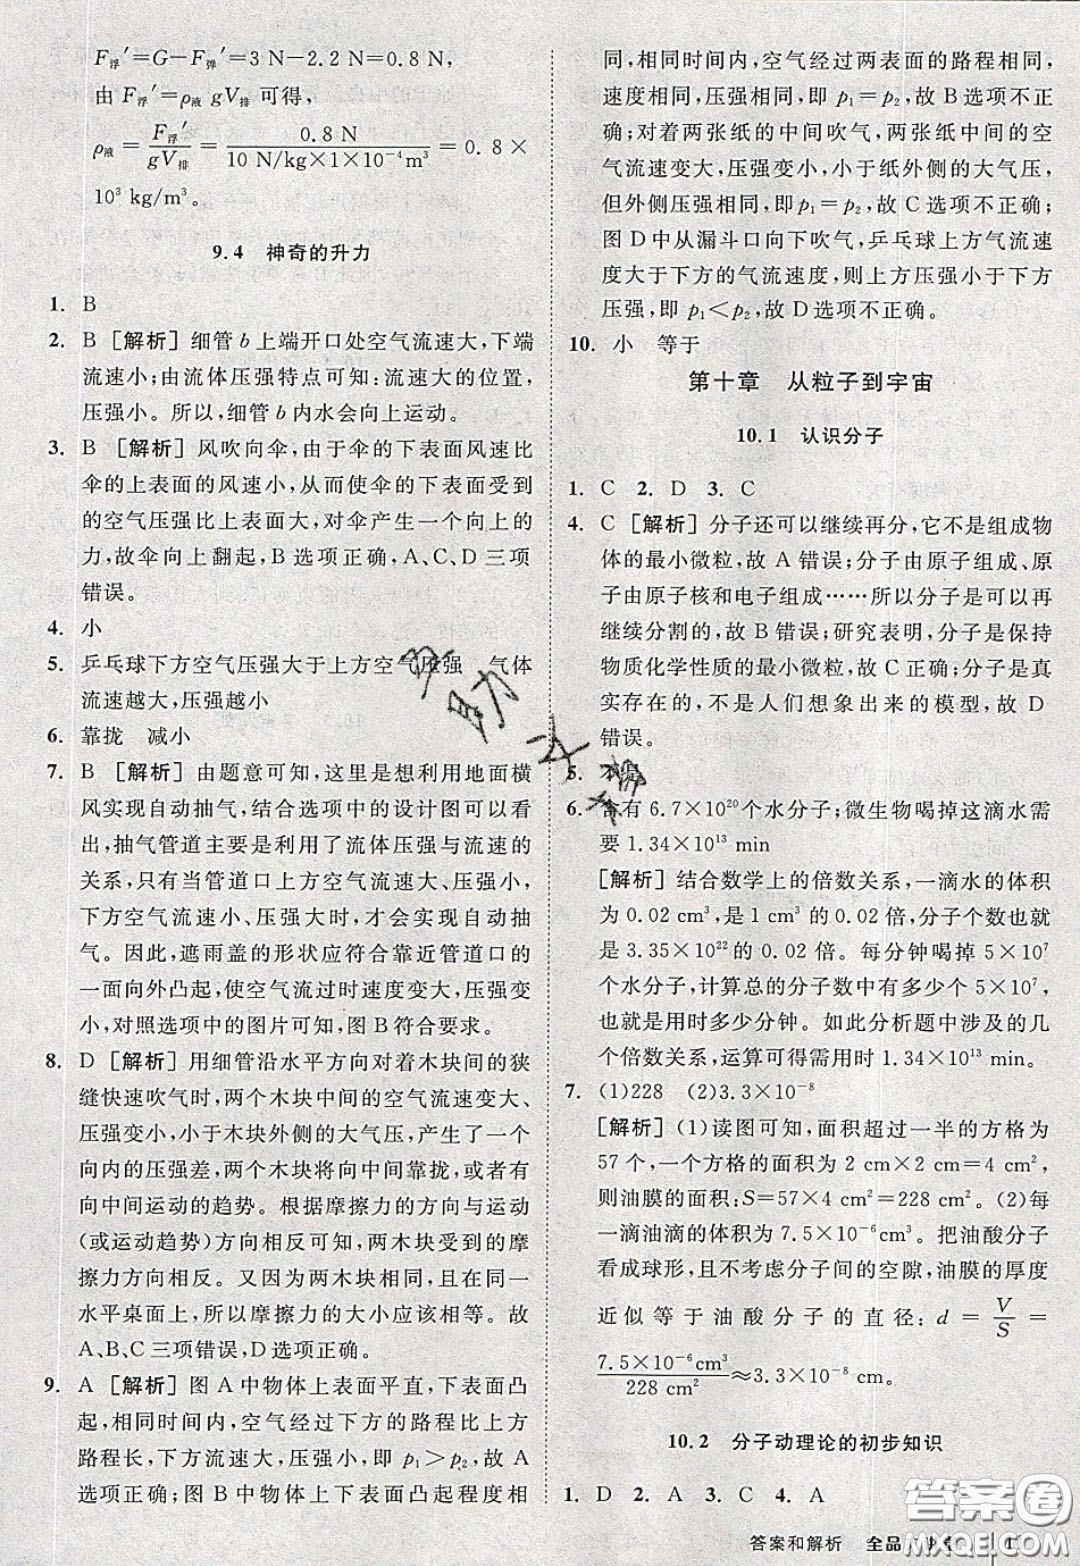 F浮′=G−F弹′=3 N−2.2 N=0.8 N,
由 F浮′=ρ液 gV排 可得,
ρ液 = F浮′/gV排 = 0.8 N/10 N/kg×1×10⁻⁴m³ = 0.8 ×
10³ kg/m³。
9.4 神奇的升力
1. B
2. B [解析] 细管 b 上端开口处空气流速大,下端
流速小;由流体压强特点可知:流速大的位置,
压强小。所以,细管 b 内水会向上运动。
3. B [解析] 风吹向伞,由于伞的下表面风速比
伞的上表面的风速小,从而使伞的下表面受到
的空气压强比上表面大,对伞产生一个向上的
力,故伞向上翻起,B 选项正确,A、C、D 三项
错误。
4. 小
5. 乒乓球下方空气压强大于上方空气压强 气体
流速越大,压强越小
6. 靠拢 减小
7. B [解析] 由题意可知,这里是想利用地面横
风实现自动抽气,结合选项中的设计图可以看
出,抽气管道主要是利用了流体压强与流速的
关系,只有当管道口上方空气流速大、压强小,
下方空气流速小、压强大时,才会实现自动抽
气。因此,遮雨盖的形状应符合靠近管道口的
一面向外凸起,使空气流过时速度变大、压强变
小,对照选项中的图片可知,图 B 符合要求。
8. D [解析] 用细管沿水平方向对着木块间的狭
缝快速吹气时,两个木块中间的空气流速变大、
压强变小,小于木块外侧的大气压,产生了一个
向内的压强差,两个木块将向中间靠拢,即具有
向中间运动的趋势。根据摩擦力的方向与运动
(或运动趋势)方向相反可知,两木块受到的摩
擦力方向相反。又因为两木块相同,且在同一
水平桌面上,所以摩擦力的大小应该相等。故
A、B、C 三项错误,D 选项正确。
9. A [解析] 图 A 中物体上表面平直,下表面凸
起,相同时间内,空气经过下方的路程比上方
路程长,下方流速大,压强小,即 p₁>p₂,故 A
选项正确;图 B 中物体上下表面凸起程度相
同,相同时间内,空气经过两表面的路程相同,
速度相同,压强相同,即 p₁=p₂,故 B 选项不正
确;对着两张纸的中间吹气,两张纸中间的空
气流速变大,压强变小,小于纸外侧的大气压,
但外侧压强相同,即 p₁=p₂,故 C 选项不正确;
图 D 中从漏斗口向下吹气,乒乓球上方气流速
度大于下方的气流速度,则上方压强小于下方
压强,即 p₁<p₂,故 D 选项不正确。
10. 小 等于
第十章 从粒子到宇宙
10.1 认识分子
1. C 2. D 3. C
4. C [解析] 分子还可以继续再分,它不是组成物
体的最小微粒,故 A 错误;分子由原子组成、原
子由原子核和电子组成……所以分子是可以再
继续分割的,故 B 错误;研究表明,分子是保持
物质化学性质的最小微粒,故 C 正确;分子是真
实存在的,不是人们想象出来的模型,故 D
错误。
5.
6. 含有 6.7×10²⁰个水分子;微生物喝掉这滴水需
要 1.34×10¹³ min
[解析] 结合数学上的倍数关系,一滴水的体积
为 0.02 cm³,是 1 cm³ 的 0.02 倍,分子个数也就
是 3.35×10²² 的 0.02 倍。每分钟喝掉 5×10⁷
个水分子,计算总的分子数中有多少个 5×10⁷,
即得出用时多少分钟。如此分析题中涉及的几
个倍数关系,运算可得需用时 1.34×10¹³ min。
7. (1)228 (2)3.3×10⁻⁸
[解析] (1)读图可知,面积超过一半的方格为
57 个,一个方格的面积为 2 cm×2 cm=4 cm²,
则油膜的面积:S=57×4 cm²=228 cm²。(2)每
一滴油滴的体积为 7.5×10⁻⁶cm³。把油酸分子
看成球形,且不考虑分子间的空隙,油膜的厚度
近似等于油酸分子的直径:d = V/S =
7.5×10⁻⁶cm³/228 cm²≈3.3×10⁻⁸ cm。
10.2 分子动理论的初步知识
1. D 2. A 3. C 4. A
答案和解析 全品
答案圈
MXQE.COM